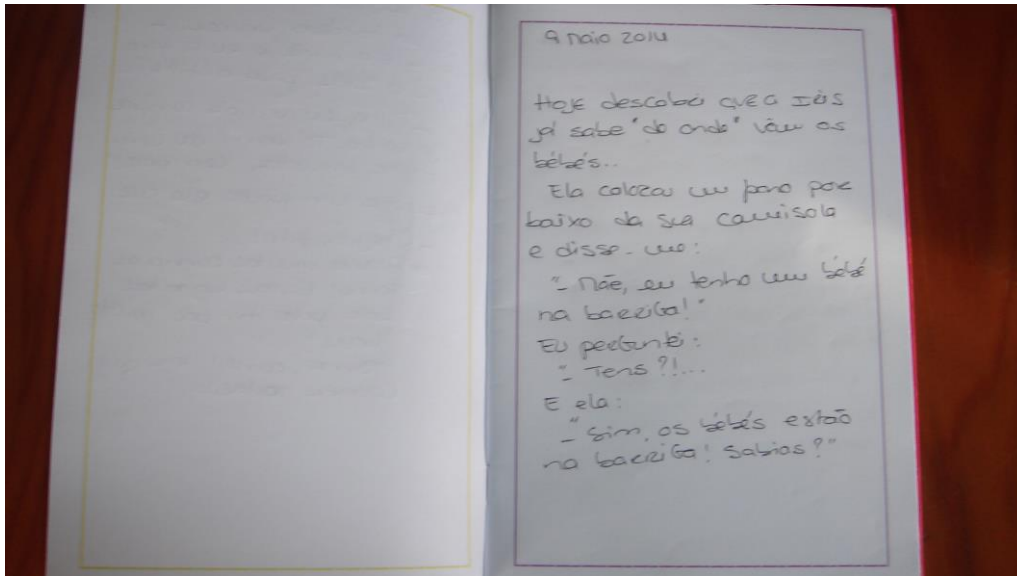 9 Maio 2014
Hoje descobri que a Iris
já sabe "de onde" vêm os
bébés...
Ela colocou um pano por
baixo da sua camisola
e disse-me:
"- Mãe, eu tenho um bébé
na barriga!"
Eu perguntei:
"- Tens?!...
E ela:
-"Sim, os bébés estão
na barriga! Sabias?"